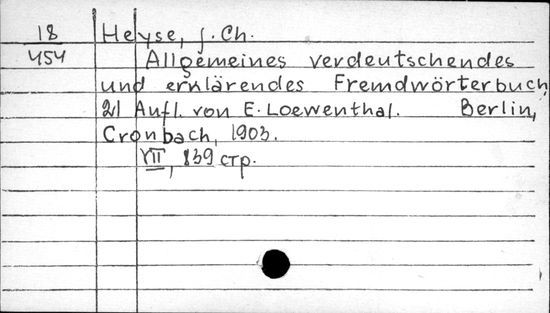 18 Heyse, J. Ch.
454 Allgemeines verdeutschendes
und erklärendes Fremdwörterbuch
21 Aufl. von E. Loewenthal. Berlin,
Cronbach, 1903.
VII, 839 стр.